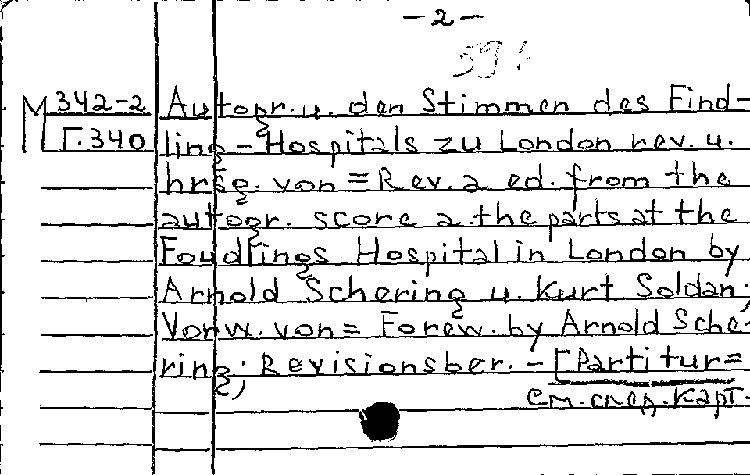 -2-
M 342-2
Г.340
Autogr. u. den Stimmen des Find-
ling-Hospitals zu London rev. u.
hrsg. von = Rev. a ed. from the
autogr. score a the parts at the
Foudlings Hospital in London by
Arnold Schering u. Kurt Soldan;
Vorw. von = Forew. by Arnold Sche-
ring; Revisionsber. - [Partitur =
См. след. карт.